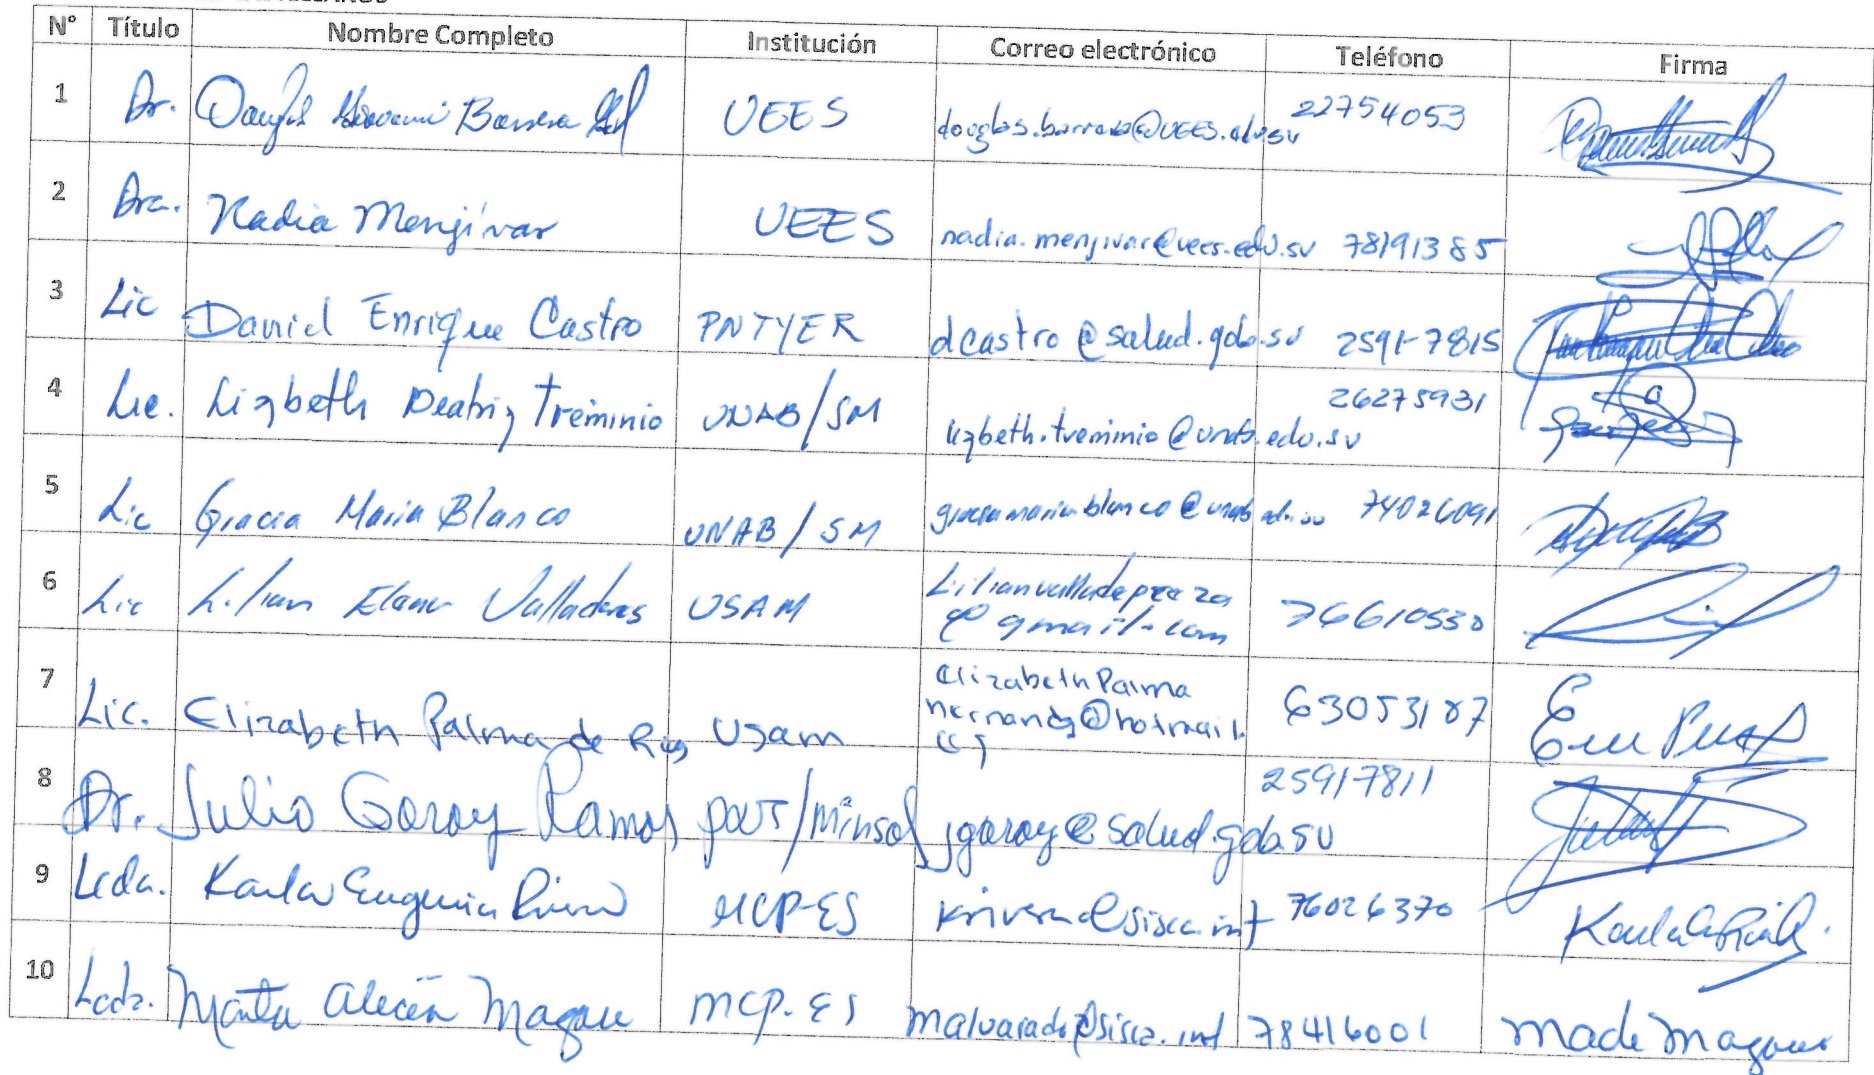 N° Título Nombre Completo Institución Correo electrónico Teléfono Firma
1 Dr. Giovanni Barrera UEES douglas.barrera@UEES.edu.sv 22754053
2 Dra. Nadia Menjívar UEES nadia.menjivar@uees.edu.sv 78191385
3 Lic Daniel Enrique Castro PNTYER dcastro@salud.gob.sv 2591-7815
4 Lic. Lizbeth Beatriz Treminio UNAB/SM lizbeth.treminio@unab.edu.sv 26275931
5 Lic Gracia Maria Blanco UNAB/SM 74026091
6 Lic Lilian Elena Valladares USAM
@gmail.com 76610530
7 Lic. Elizabeth Palma de USAM Elizabeth Palma
@hotmail. 63053187
8 Dr. Julio Garay Ramos /Minsal jgaray@salud.gob.sv 25917811
9 Lcda. Karla Eugenia Rivera MCP-ES krivera@sisca.int 76026370
10 Lcda. Marta Alicia Magaña MCP-ES malvarado@sisca.int 78416001